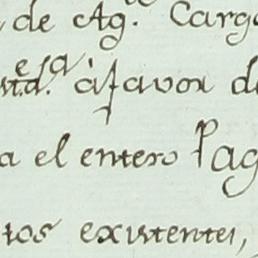 de Ag. Carg
esa
àfavor d
a el entero Pag
tos existentes,